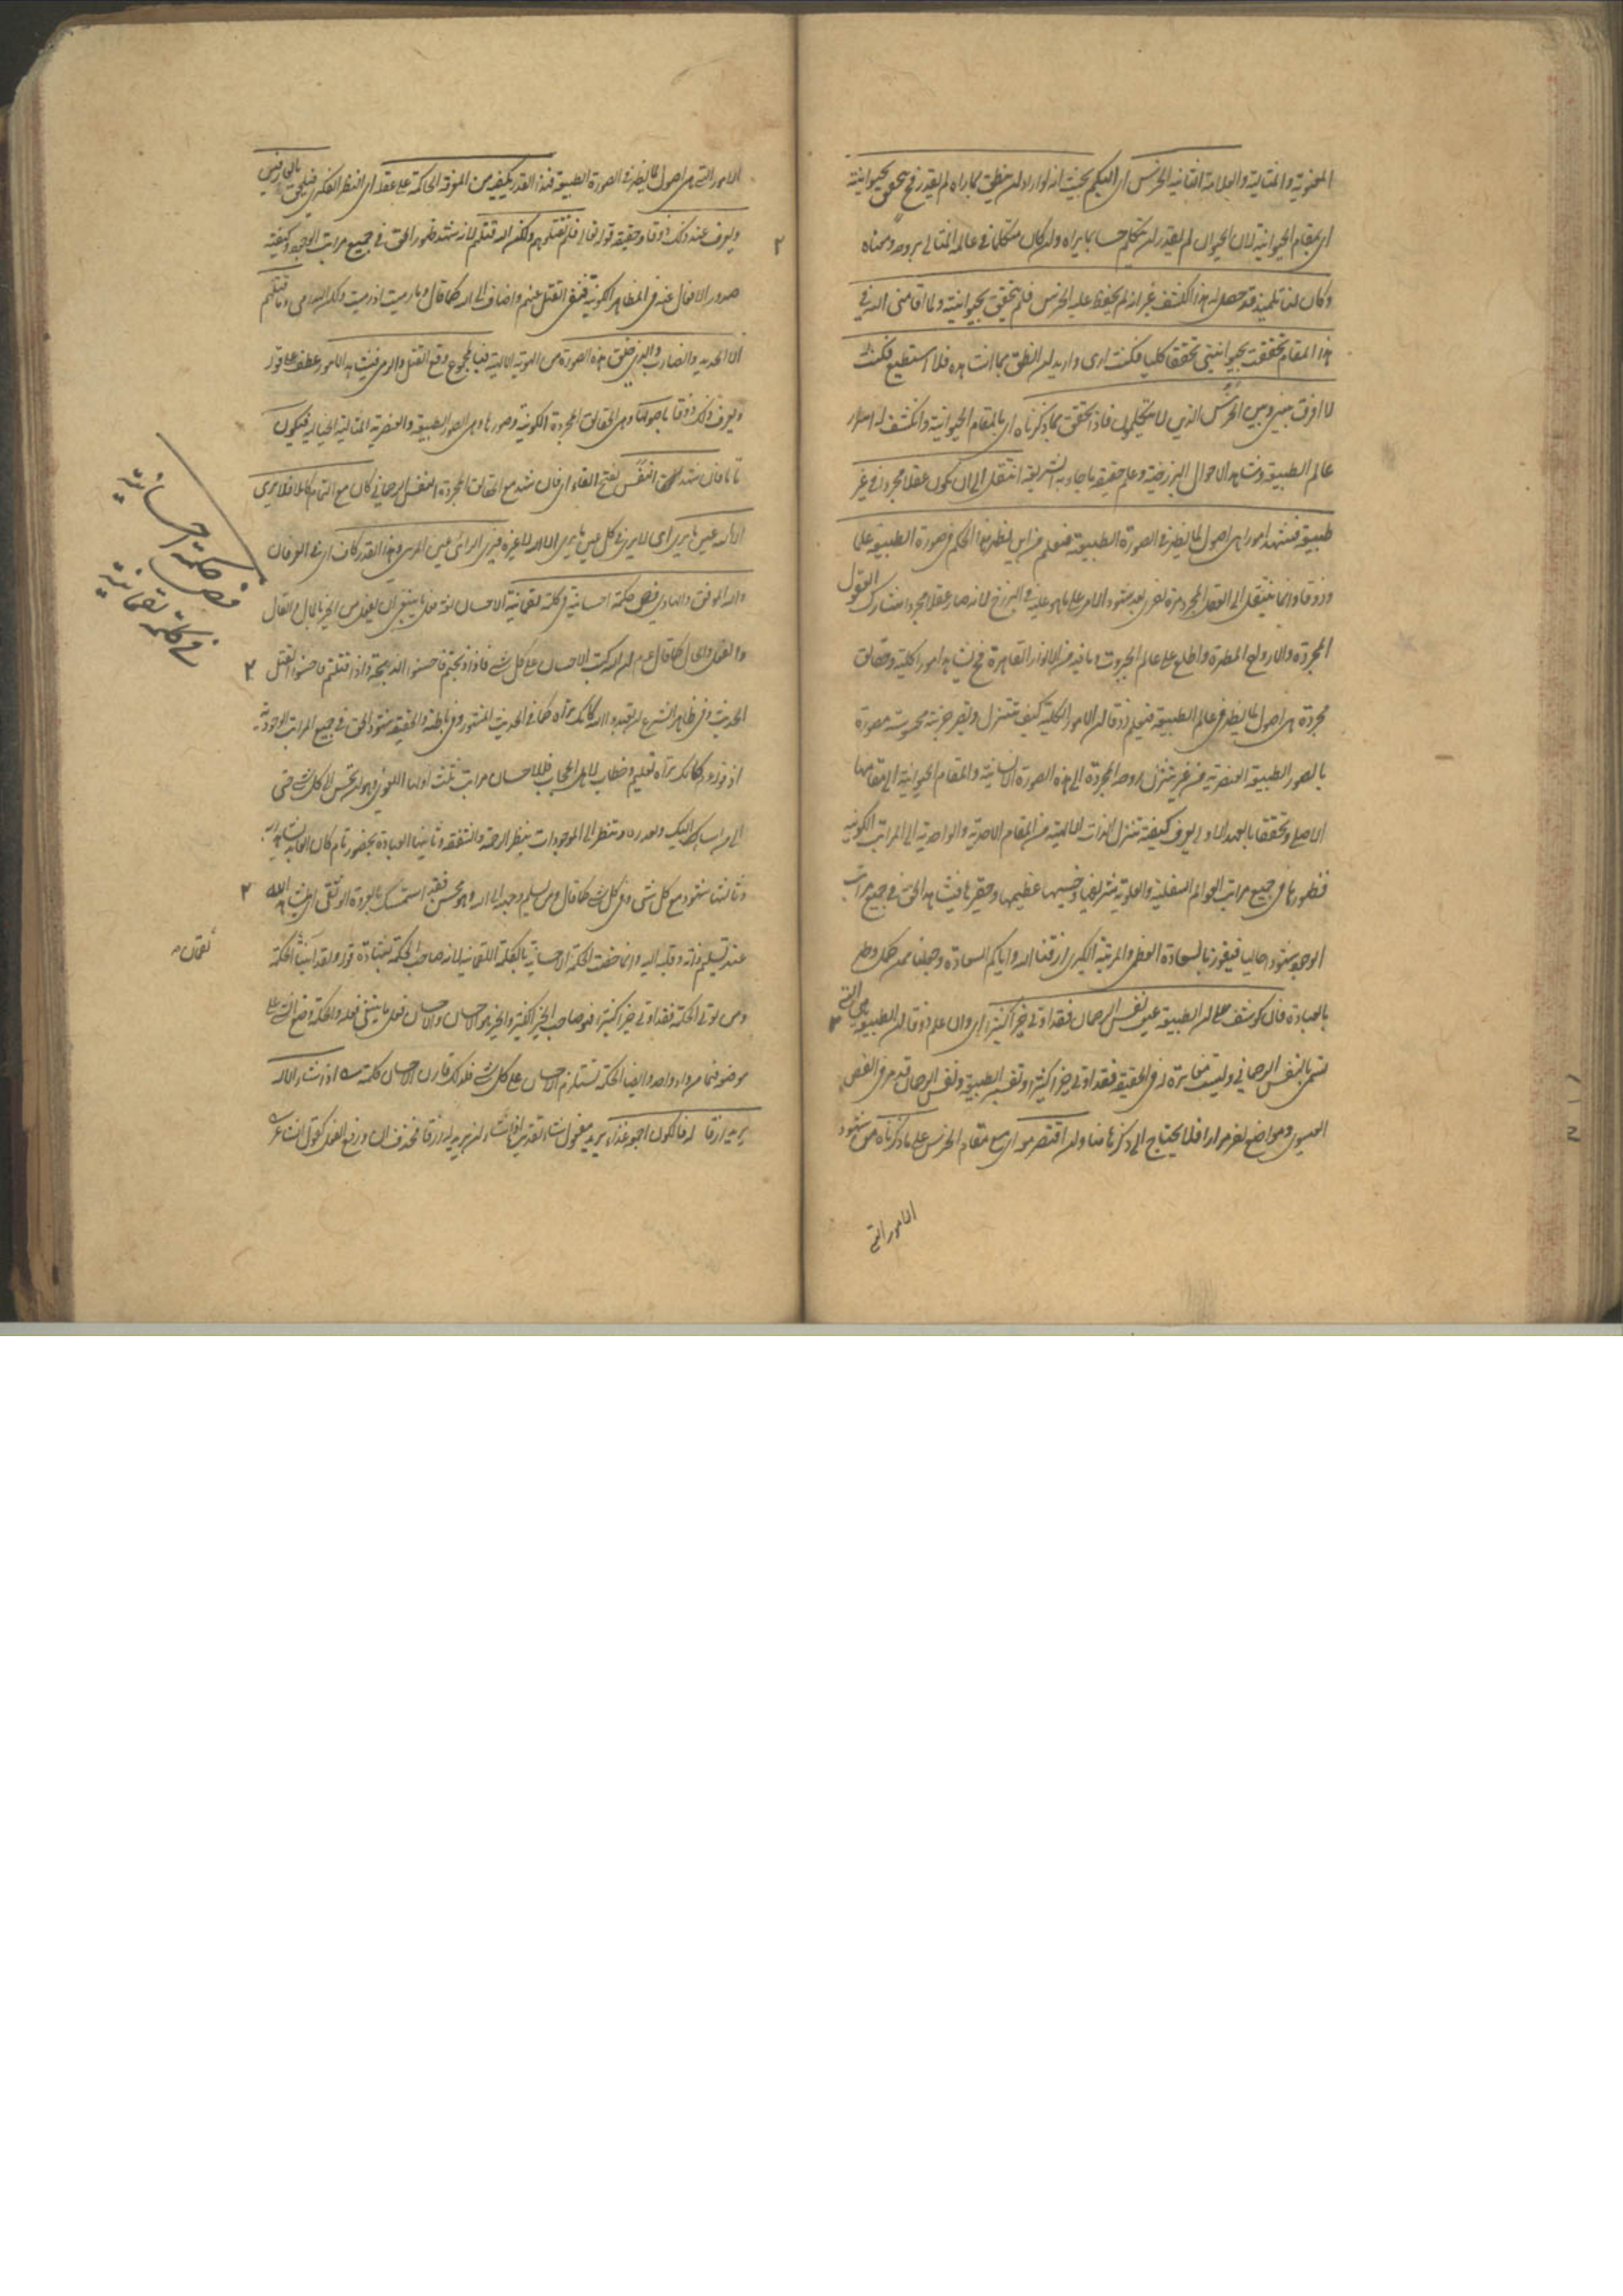 المعنوية والمثالية والعلامة الثانية الخرس اى البكم بحيث انه لو اراد ان ينطق بما راه لم يقدر فح يتحقق بحيوانيته
اى بمقام الحيوانية لان الحيوان لم يقدر ان يتكلم حسا بما يراه وان كان متكلما في عالمه المثالى بروحه ومعناه
وكان لنا تلميذ قد حصل له هذا الكشف غير انه لم يحفظ عليه الخرس فلم يتحقق بحيوانيته ولما اقامنى الله في
هذا المقام تحققت بحيوانيتى تحققا كليا فكنت ارى واريد ان انطق بما اشاهده فلا استطيع فكنت
لا افرق بينى وبين الخرس الذين لا يتكلمون فاذا تحقق بما ذكرناه اى بالمقام الحيوانية وانكشف له اسرار
عالم الطبيعة وشاهد الاحوال البرزخية وعلم حقيقة ما جاء به الشريعة انتقل الى ان يكون عقلا مجردا في غير
طبيعة فيشهد امورا هى اصول لما يظهر في الصورة الطبيعية فيعلم من اين يظهر هذا الحكم في صورة الطبيعة علما
وذوقا وانما ينتقل الى العقل المجرد مرة اخرى بعد شهود الامر على ما هو عليه في البرزخ لانه صار عقلا مجردا مشاركا العقول
المجردة والارواح المطهرة واطلع على عالم الجبروت وما فيه من الانوار القاهرة فح يشاهد امورا كلية وحقائق
مجردة هى اصول لما يظهر في عالم الطبيعة فيعلم ذوقا ان الامور الكلية كيف تتنزل وتصير جزئية محسوسة مصورة
بالصور الطبيعية العنصرية من غير تنزل روحه المجردة الى هذه الصورة الانسانية والمقام الحيوانية الى مقامها
الاصلى وتحققها بالعهد الاول يعرف كيفية تنزل الذات الالهية من المقام الاحدية والواحدية الى المراتب الكونية
فظهورها في جميع مراتب العوالم السفلية والعلوية شريفها وخسيسها عظيمها وحقيرها فيشاهد الحق في جميع مراتب
الوجود شهودا حاليا فيفوز بالسعادة العظمى والمرتبة الكبرى ارزقنا الله واياكم السعادة وجعلنا ممن
فان كوشف على ان الطبيعة عين نفس الرحمان فقد اوتى خيرا كثيرا اى وان علم ذوقا ان الطبيعة هى التى
تسمى بالنفس الرحمانى وليست مغايرة له في الحقيقة فقد اوتى خيرا كثيرا وتفسير الطبيعة ونفس الرحمان قد مر في الفص
العيسوى ومواضع اخر مرارا فلا يحتاج الى ذكرها هنا وان اقتصر معه اى مع مقام الخرس على ما ذكرناه من شهود
الامور التى
الامور التى هى اصول لما يظهر في الصورة الطبيعية فهذا القدر يكفيه من المعرفة الحاكمة على عقله اى النظر الفكرى فيلحق بالعارفين
ويعرف عند ذلك ذوقا وحقيقة قوله تعالى فلم تقتلوهم ولكن الله قتلهم لانه شهد ظهور الحق في جميع مراتب الوجود وكيفية
صدور الافعال عنه في المظاهر الكونية فينفى القتل عنهم واضافه الى الله كما قال وما رميت اذ رميت ولكن الله رمى وما قتلهم
الا الحديد والضارب والذى خلق هذه الصورة من الهوية الالهية فبالمجموع وقع القتل والرمى فيشاهد الامور عطف على قوله
ويعرف ذلك ذوقا باصولها وهى الحقائق المجردة الكونية وصورها وهى الصور الطبيعية والعنصرية المثالية الخيالية فيكون
تاما فان شهد النفس بفتح الفاء اى فان شهد مع الحقائق المجردة النفس الرحمانى كان مع التمام كاملا فلا يرى
الا الله عين ما يرى اى لا يرى في كل عين ما يرى الا الله لا غيره فيرى الرائى عين المرئى وهذا القدر كاف اى في العرفان
والله الموفق والهادى فص حكمة احسانية في كلمة لقمانية الاحسان لغة فعل ما ينبغى ان يفعل من الخير بالمال والقال
والفعل والحال كما قال عم ان الله كتب الاحسان على كل شئ فاذا ذبحتم فاحسنوا الذبحة واذا قتلتم فاحسنوا القتل
الحديث وفي ظاهر الشرع ان تعبد الله كانك تراه كما في الحديث المشهور وفي باطنه والحقيقة شهود الحق في جميع المراتب الوجودية
اذ قوله كانك تراه تعليم وخطاب لاهل الحجاب فللاحسان مراتب ثلث اولها اللغوى وهو ان تحسن الى كل شئ حتى
الى من اساء اليك وتعذره وتنظر الى الموجودات بنظر الرحمة والشفقة وثانيها العبادة بحضور تام كان العابد يشاهد ربه
وثالثها شهود مع كل شئ وفي كل شئ كما قال ومن يسلم وجهه الى الله وهو محسن فقد استمسك بالعروة الوثقى اى مشاهد لله
عند تسليم ذاته وقلبه اليه وانما خصت الحكمة الاحسانية بالكلمة اللقمانية لانه صاحب الحكمة بشهادة قوله ولقد آتينا لقمان الحكمة
ومن يؤتى الحكمة فقد اوتى خيرا كثيرا فهو صاحب الخير الكثير والخير هو الاحسان والاحسان فعل ما ينبغى فعله والحكمة وضع الشئ على
موضعه فهما من واد واحد وايضا الحكمة تستلزم الاحسان على كل شئ فلذلك قارن الاحسان كلمته اذا شاء الاله
يريد رزقا له فالكون اجمعه غذاء يريد مفعول شاء تقديره اذا شاء ان يريد له رزقا فحذف ان ورفع الفعل كقول الشاعر
فص حكمة احسانية
في كلمة لقمانية
لقمان